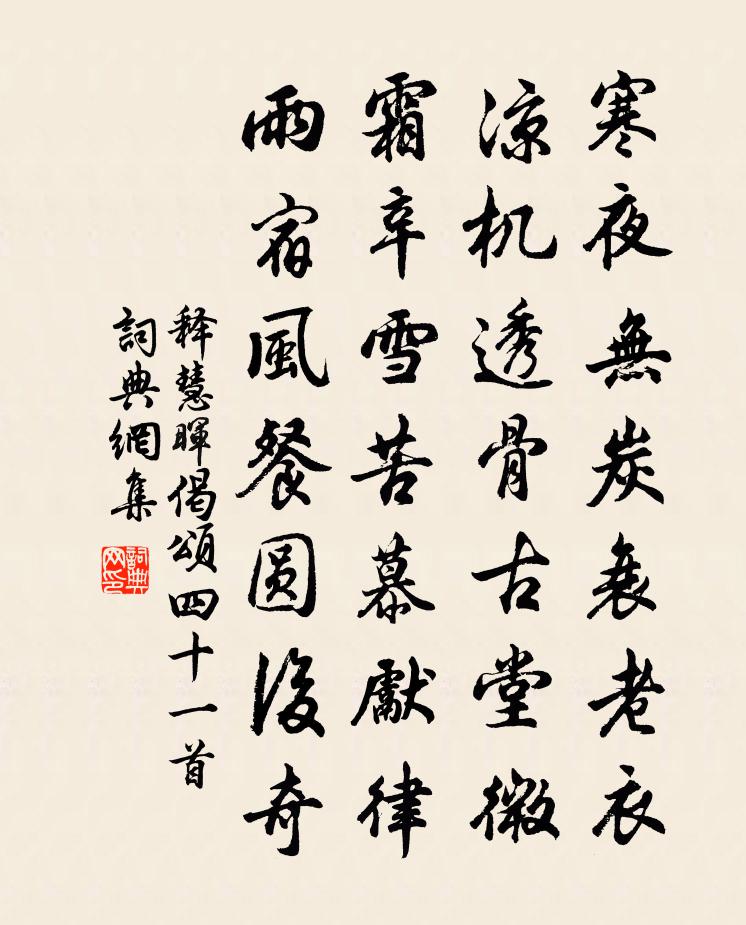 寒夜無炭衰老衣
涼机透骨古堂微
霜辛雪苦慕獻律
雨宿風餐圆後奇
释慧暉偈頌四十一首
詞典網集
詞典网印